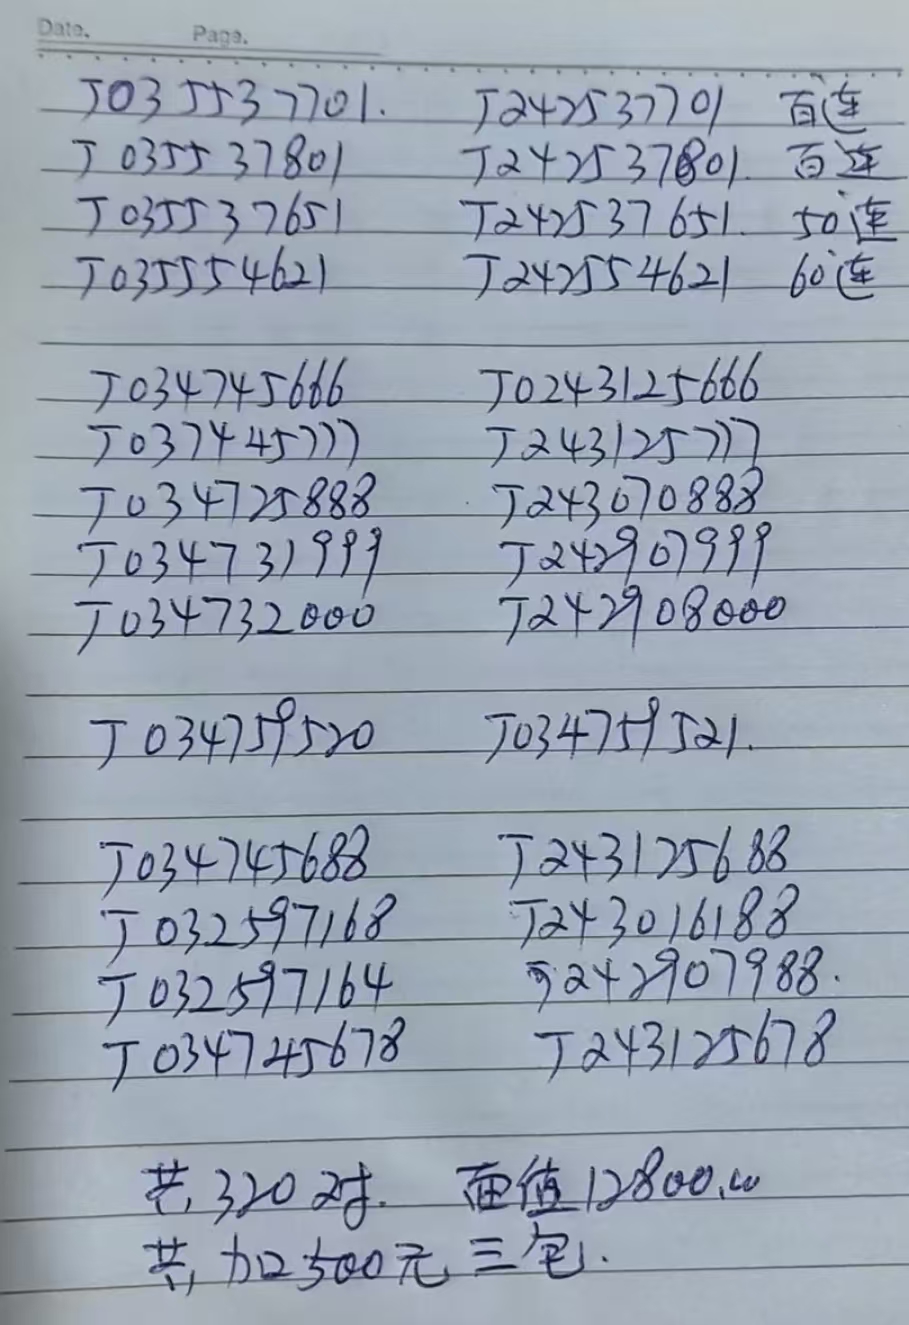 Date. Page.
J035537701. J242537701 百连
J035537801 J242537801. 百连
J035537651 J242537651. 50连
J035554621 J242554621 60连
J034745666 J0243125666
J037445777 J243125777
J034725888 J243070888
J034731999 J242907999
J034732000 J242908000
J034759520 J034759521.
J034745688 J243125688
J032597168 J243016188
J032597164 J242907988.
J034745678 J243125678
共, 320对. 面值12800.00
共, 加500元三包.